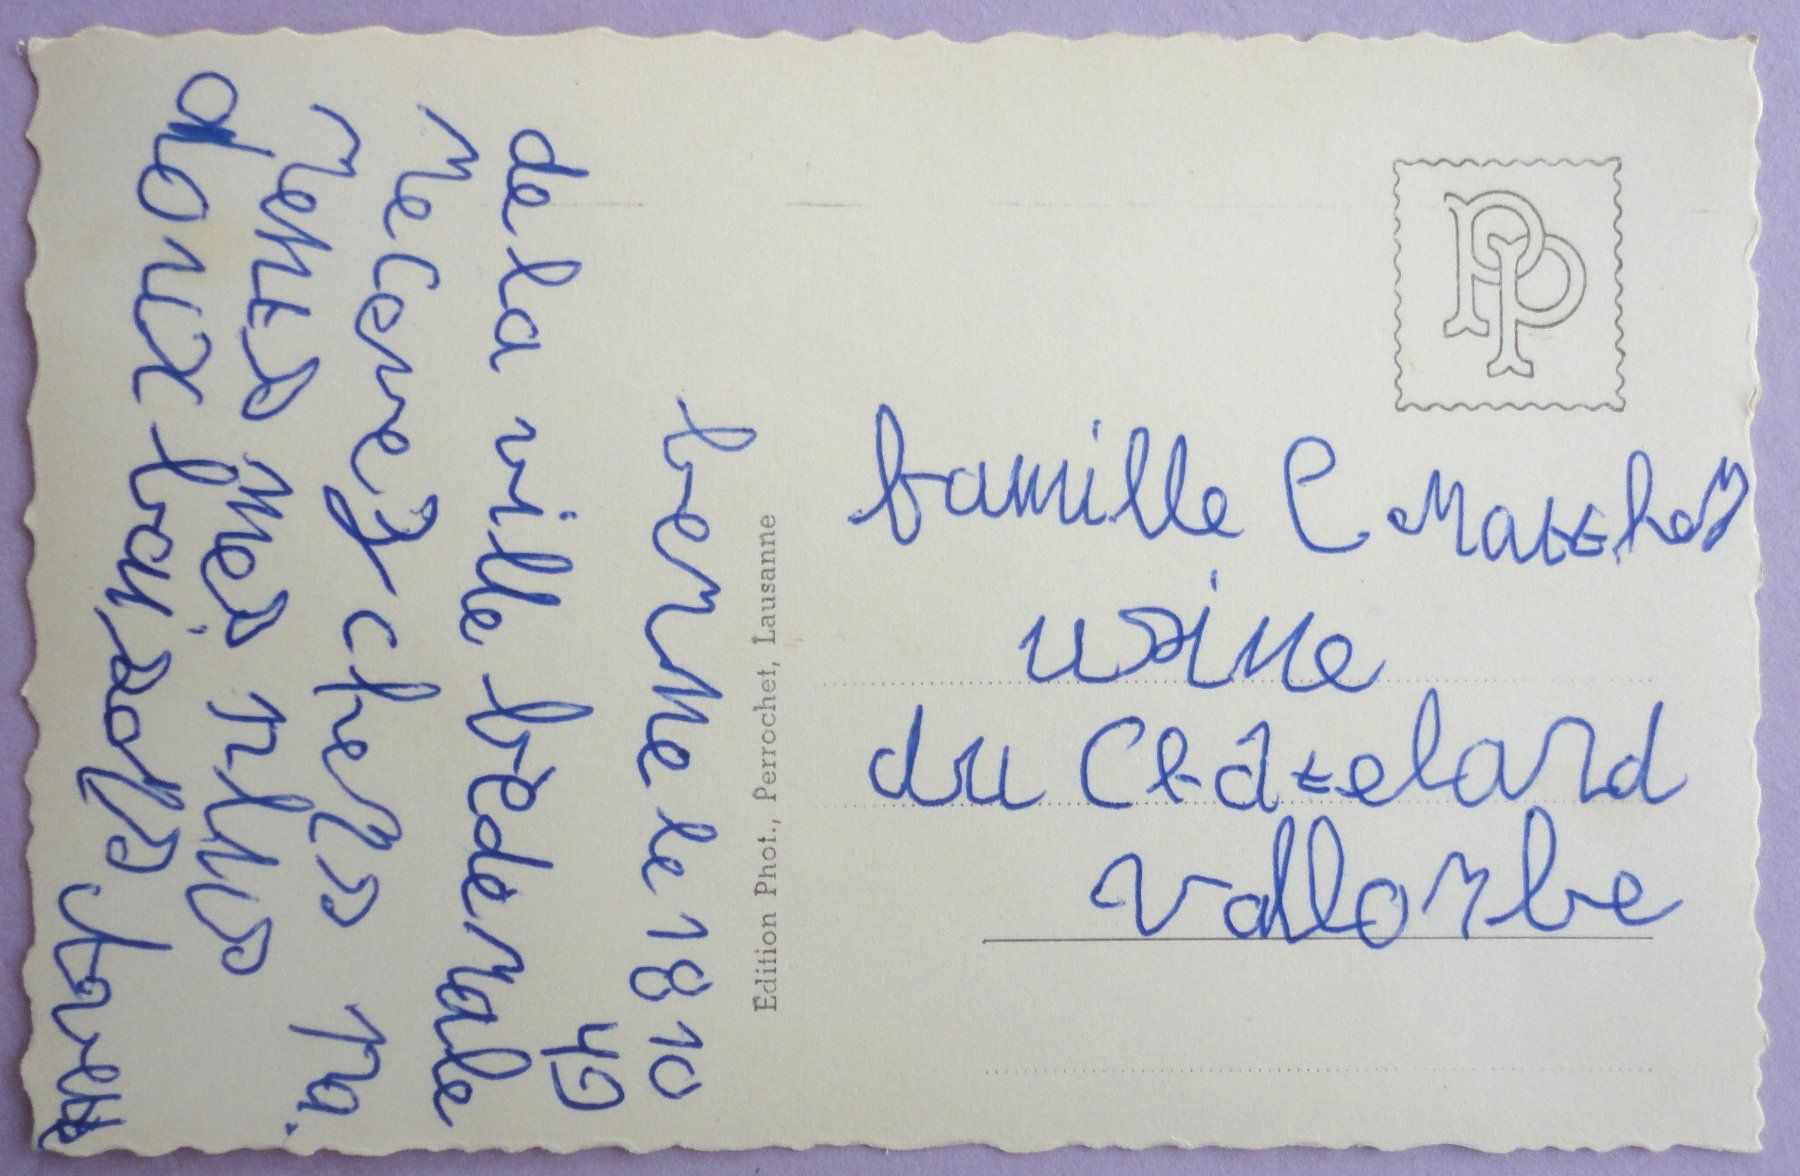 berne le 18 10
49
de la ville fédérale
Recevez chers pa.
rents mes plus
doux baisers
Edition Phot., Perrochet, Lausanne
PP
famille C Matthey
usine
du Châtelard
Vallorbe